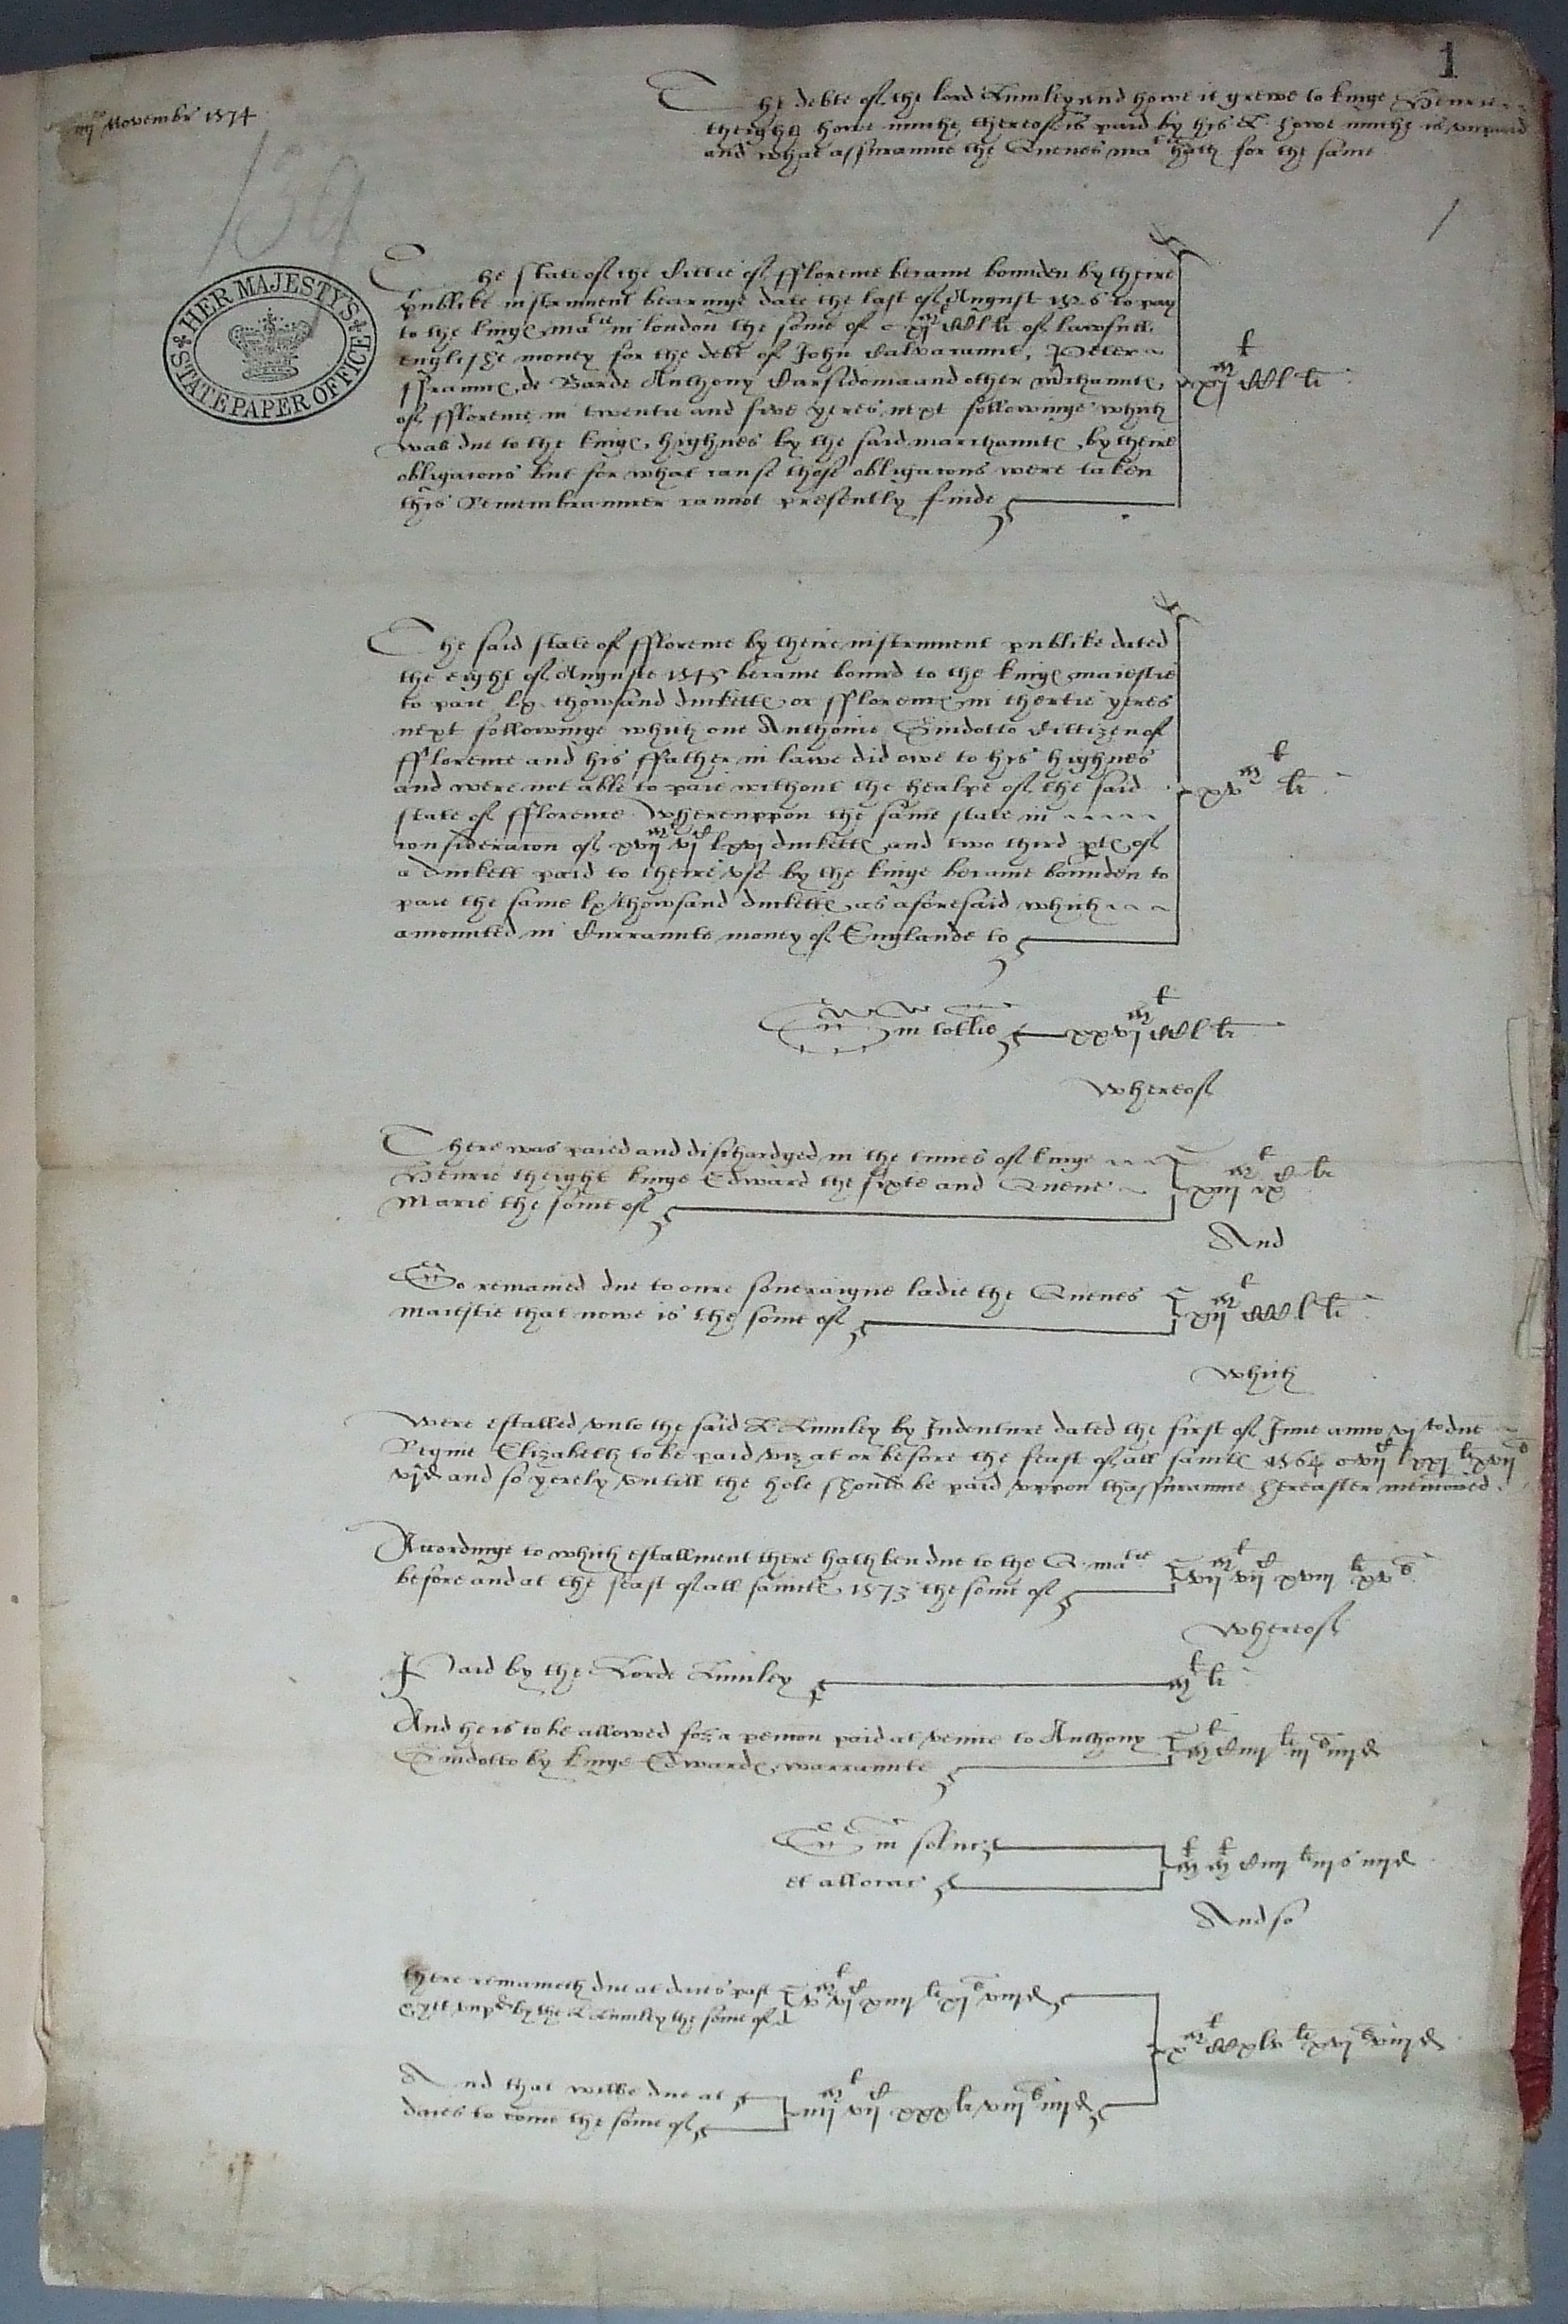 1
iiijto Novembr 1574
The debte of the lord Lumley and howe it grewe to kinge Henrie
theight howe muche thereof is paid by his L. howe muche is unpaid
and what assuraunce the Quenes matie hath for the same
139
HER MAJESTY'S STATE PAPER OFFICE
The state of the Cittie of Fflorence became bounden by theire
publike instrument bearinge date the last of August to pay
to the kinges matie in london the some of xjm CCl li of lawfull
englishe money for the debt of John Calvacaunte, Peter
Ffraunces de Barde Anthony and other m'chauntes
of Fflorence in twentie and five yeres next followinge which
was due to the kinges highnes by the said marchauntes by theire
obligacons but for what cause those obligacons were taken
this Remembrauncer cannot presently finde
xjm CCl li
The said state of Fflorence by theire instrument publike dated
the eight of Auguste 1545 became bound to the kinges maiestie
to paie lx thowsand duckettes or Fflorences in thertie yeres
next followinge which one Anthonie Guidotto Cittizen of
Fflorence and his ffather in lawe did owe to his highnes
and were not able to paie without the healpe of the said
state of Fflorence Whereuppon the same state in
consideracon of xvijm vjC lxvj duckettes and two third ptes of
a duckett paid to theire use by the kinge became bounden to
paie the same lx thowsand duckettes as aforesaid which
amounted in Curraunte money of Englande to
xvm li
Sm in toclis xxvjm CCl li
Whereof
There was paied and dischardged in the times of kinge
Henrie theight kinge Edward the sixte and Quene
Marie the some of
xiijm ixC li
And
So remained due to oure soueraigne ladie the Quenes
maiestie that nowe is the some of
xijm CCCl li
Which
Were estalled unto the said L Lumley by Indenture dated the first of June anno vjto dne
Regine Elizabeth to be paid viz at or before the feast of all saintes 1564 vijC lxxj li xvijs
vjd and so yerely untill the hole should be paid uppon thassuraunce hereafter mencioned
Accordinge to which estallment there hath ben due to the Q. matie
before and at the feast of all saintes 1573 the some of
vijm vijC xviij li xvs
Whereof
Paid by the Lorde Lumley
m li
And he is to be allowed for a pencon paid at venice to Anthony
Guidotto by kinge Edwardes warraunte
m Ciiij li iijs iiijd
Sm in solucs
et allocac
m m Ciiij li iijs iiijd
And so
there remaineth due at daies past
& yett unpd by the L Lumley the some of
vm vjC xiiij li xjs viijd
And that wilbe due at
daies to come the some of
iiijm vijC xxxj li viijs iiijd
xm CCCxlv li xvjs viijd